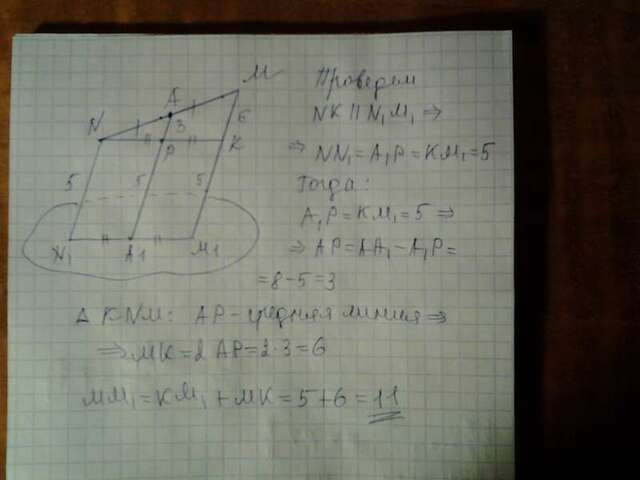 M
A
N
6
3
P
K
5
5
5
N₁
A1
M1
Проведем
NK || N₁M₁ ⇒
⇒ NN₁ = A₁P = KM₁ = 5
Тогда:
A₁P = KM₁ = 5 ⇒
⇒ AP = AA₁ - A₁P =
= 8 - 5 = 3
Δ KNM: AP - средняя линия ⇒
⇒ MK = 2 AP = 2·3 = 6
MM₁ = KM₁ + MK = 5 + 6 = 11